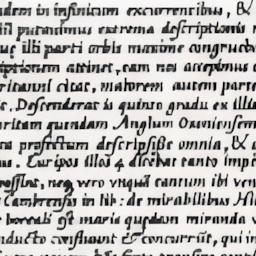 dem in infinitum excurrentibus, &
putauimus extrema descriptionis
illi parti orbis maxime congrueb
iptionem attinet, eam nos accepimus
ritanni citat, maiorem autem parte
. Descenderat is quinto gradu ex illa
ritam quendam Anglum Oxoniensem
profectum descripsisse omnia, &
us. Euripos illos 4 dicebat tanto impe
rossint, neq vero vnquā tantum ibi ven
Cambrensis in lib: de mirabilibus Hib
boreali est maris quædam miranda v
nducto confluunt & concurrūt, qui in